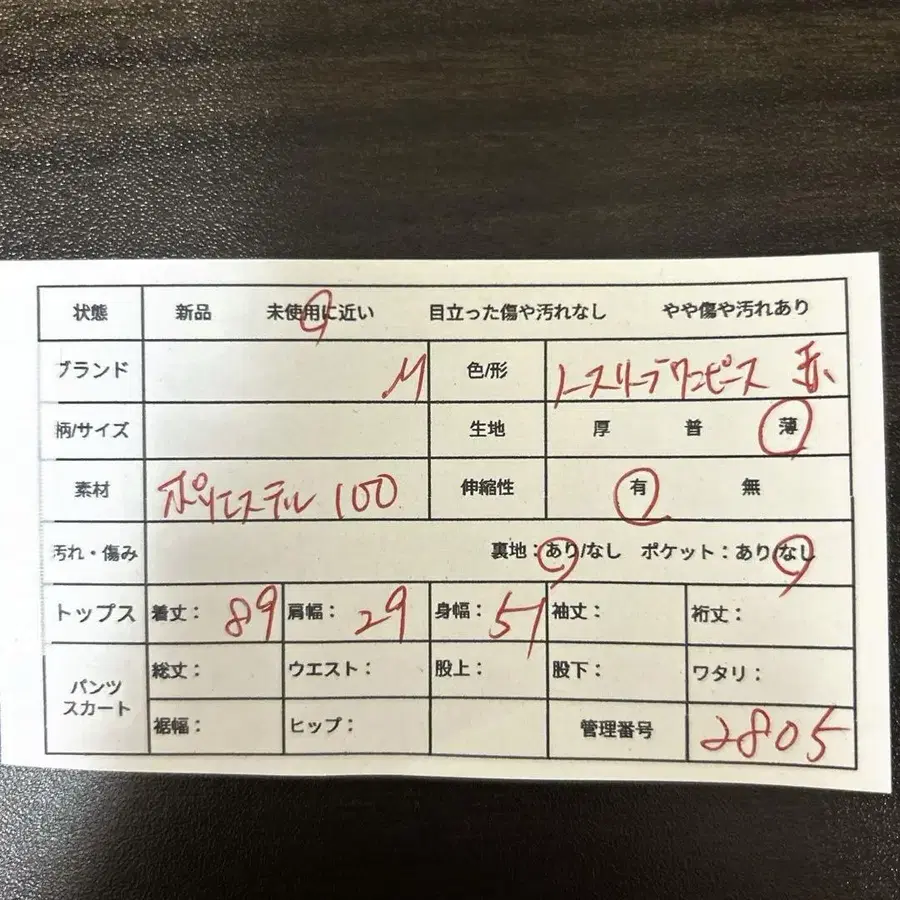 状態 新品 未使用に近い 目立った傷や汚れなし やや傷や汚れあり
ブランド M 色/形 ノースリーブワンピース 赤
柄/サイズ 生地 厚 普 薄
素材 ポリエステル 100 伸縮性 有 無
汚れ・傷み 裏地:あり/なし ポケット:あり/なし
トップス 着丈: 89 肩幅: 29 身幅: 51 袖丈: 裄丈:
パンツ スカート 総丈: ウエスト: 股上: 股下: ワタリ:
裾幅: ヒップ: 管理番号 2805